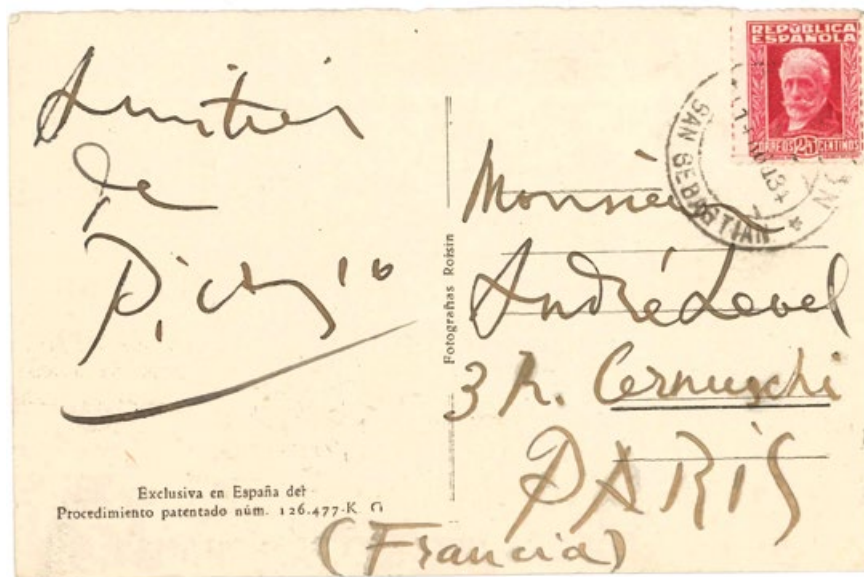 Amitiés
de
Picasso
Exclusiva en España del
Procedimiento patentado núm. 126.477-K. G
Fotografías Roisin
REPÚBLICA
ESPAÑOLA
CORREOS 25 CENTIMOS
SAN SEBASTIAN
Monsieur
André Level
3 R. Cernuschi
PARIS
(Francia)